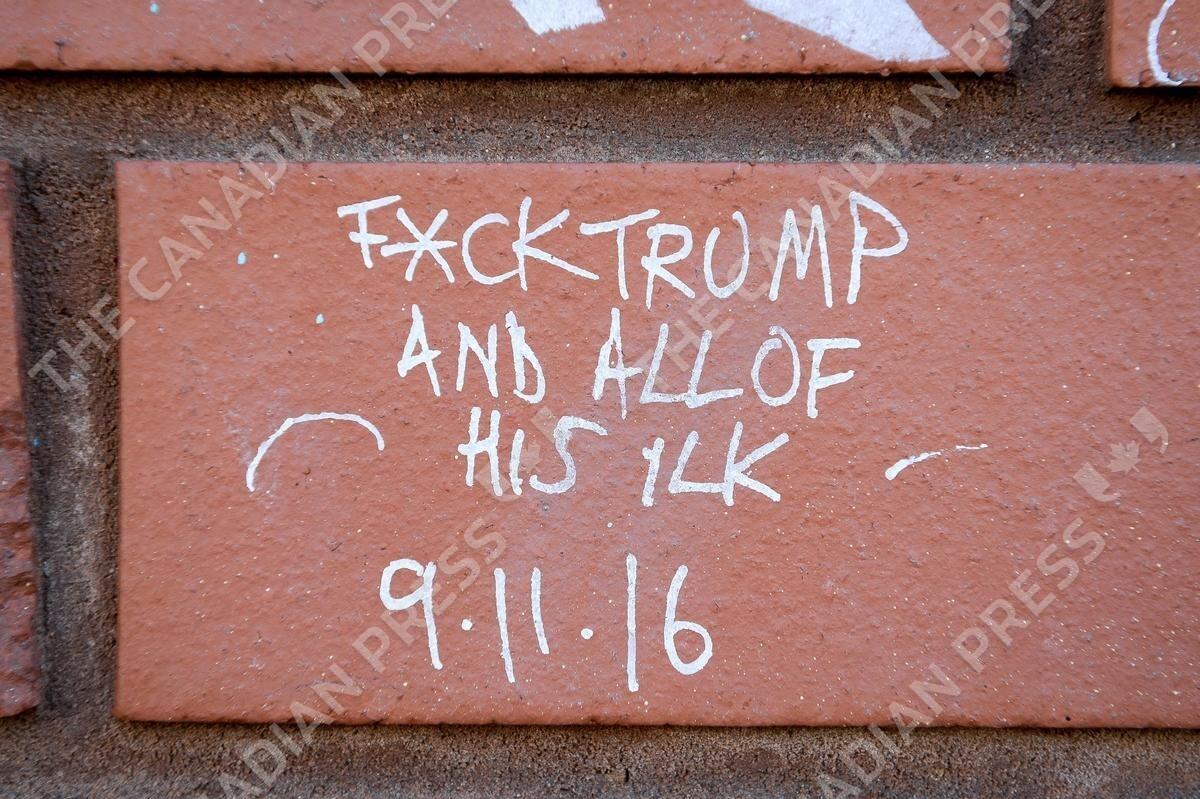 F*CK TRUMP
AND ALL OF
HIS ILK
9.11.16
THE CANADIAN PRESS
THE CANADIAN PRESS
THE CANADIAN PRESS
CANADIAN PRESS
CANADIAN PRESS